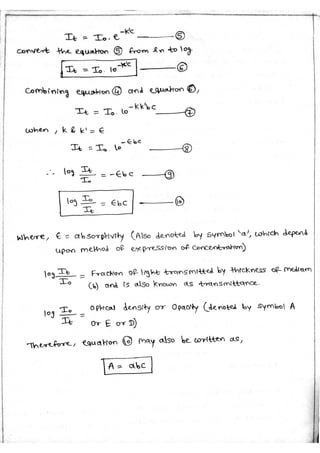 It = Io. e^-k'c —— (5)
convert the equation (5) from ln to log
It = Io. 10^-k'c —— (6)
Combining equation (4) and equation (6),
It = Io. 10^-kk'bc —— (7)
when, k & k' = ε
It = Io 10^-εbc —— (8)
∴ log It/Io = -εbc —— (9)
log Io/It = εbc —— (10)
where, ε = absorptivity (Also denoted by symbol 'a', which depend
upon method of expression of concentration)
log It/Io = Fraction of light transmitted by thickness of medium
(b) and is also known as transmittance.
log Io/It = optical density or opacity (denoted by symbol A
or E or D)
Therefore, equation (10) may also be written as,
A = abc